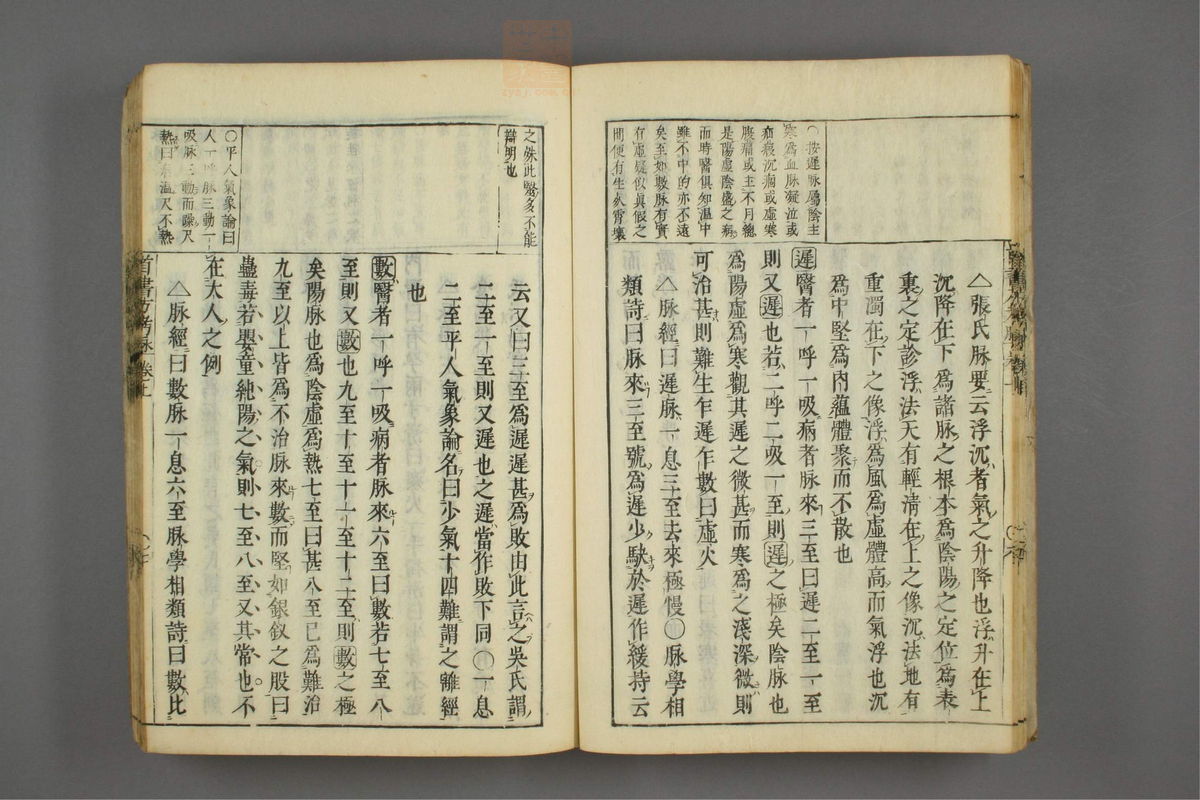 ○按遲脉屬陰主
寒爲血脉凝泣或
痼瘕沉痼或虛寒
腹痛或主不月總
是陽虛陰盛之病
而時醫俱知溫中
雖不中的亦不遠
矣至如數脉有實
有虛疑似眞假之
間便有生死霄壤
△張氏脉要云浮沉者氣之升降也浮升在上
沉降在下爲諸脉之根本爲陰陽之定位爲表
裏之定診浮法天有輕淸在上之像沉法地有
重濁在下之像浮爲風爲虛體高而氣浮也沉
爲中堅爲內蘊體聚而不散也
遲醫者一呼一吸病者脉來三至曰遲二至一至
則又遲也若二呼二吸一至則遲之極矣陰脉也
爲陽虛爲寒觀其遲之微甚而寒爲之淺深微則
可治甚則難生乍遲乍數曰虛火
△脉經曰遲脉一息三至去來極慢○脉學相
類詩曰脉來三至號爲遲少駃於遲作緩持云
之殊此醫多不能
辯明也
○平人氣象論曰
人一呼脉三動一
吸脉三動而躁尺
熱曰病溫尺不熱
云又曰三至爲遲遲甚爲敗由此言之吳氏謂
二至一至則又遲也之遲當作敗下同○一息
二至平人氣象論名曰少氣十四難謂之離經
也
數醫者一呼一吸病者脉來六至曰數若七至八
至則又數也九至十至十一至十二至則數之極
矣陽脉也爲陰虛爲熱七至曰甚八至已爲難治
九至以上皆爲不治脉來數而堅如銀釵之股曰
蠱毒若嬰童純陽之氣則七至八至又其常也不
在大人之例
△脉經曰數脉一息六至脉學相類詩曰數比